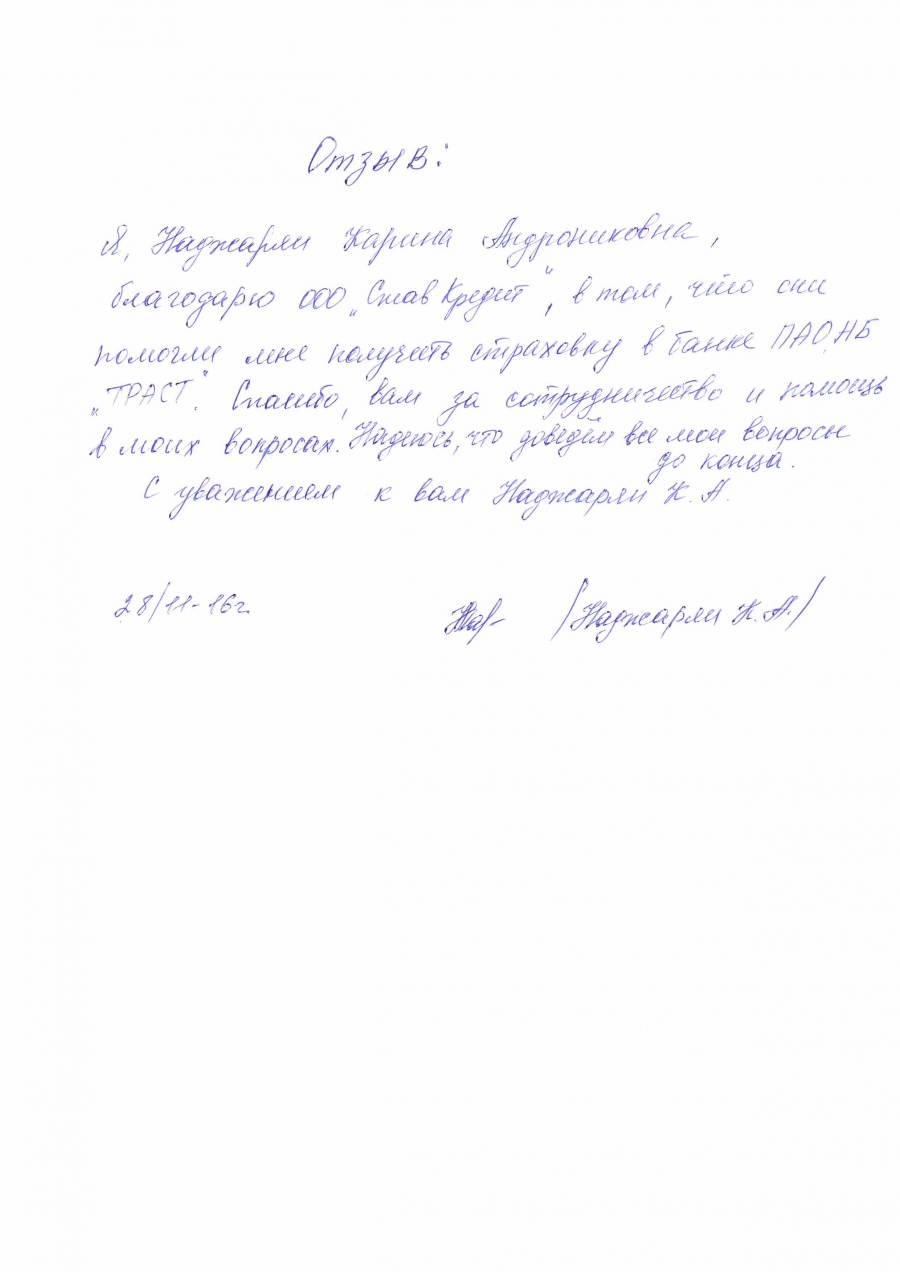 Отзыв:
Я, Наджарян Карина Андрониковна,
благодарю ООО „Став Кредит", в том, что они
помогли мне получить страховку в банке ПАО НБ
„ТРАСТ". Спасибо, вам за сотрудничество и помощь
в моих вопросах. Надеюсь, что доведём все мои вопросы
до конца.
С уважением к вам Наджарян К. А.
28/11-16г. /Наджарян К. А./